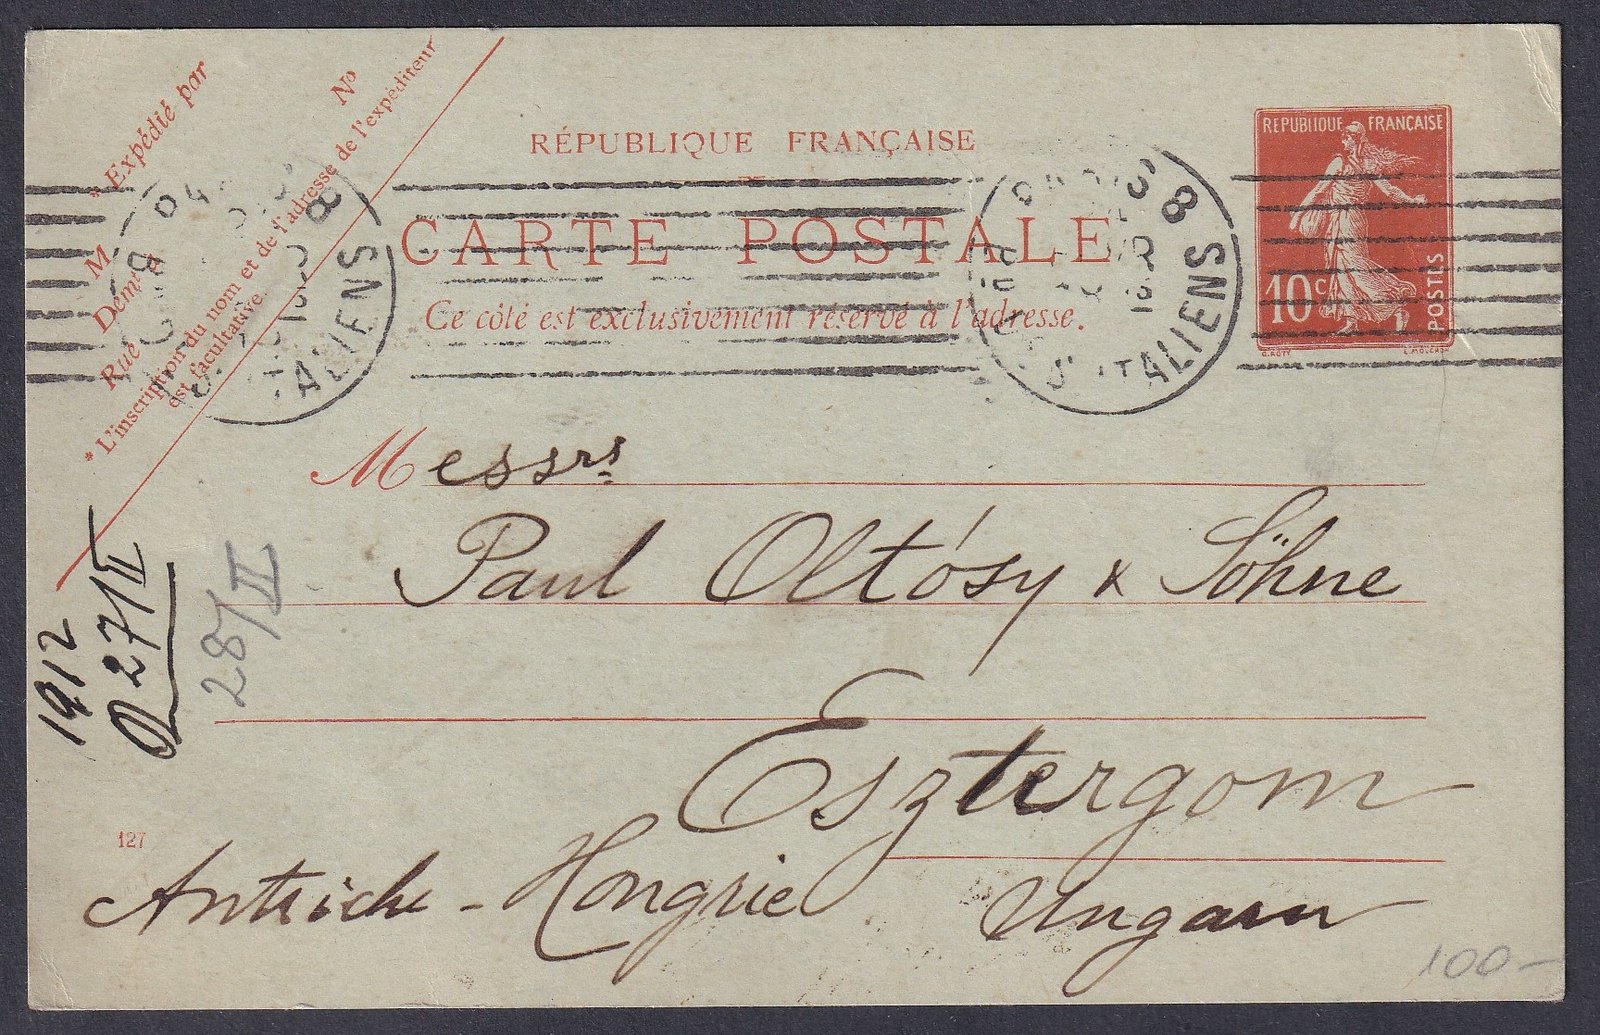 * Expédié par
M
Demt
Rue
No
* L'inscription du nom et de l'adresse de l'expéditeur
est facultative.
RÉPUBLIQUE FRANÇAISE
CARTE POSTALE
Ce côté est exclusivement réservé à l'adresse.
REPUBLIQUE FRANÇAISE
10c
POSTES
O. ROTY
8
ITALIENS
8
ALIENS
Messrs
Paul Oltósy & Söhne
Esztergom
Autriche - Hongrie Ungarn
1912
27/II
28/II
127
100-